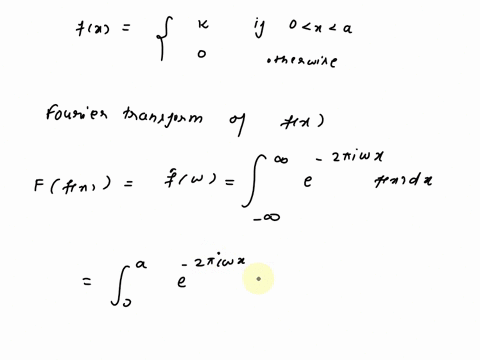 f(x) = { K if 0 < x < a
0 otherwise
Fourier transform of f(x)
F(f(x)) = f̂(ω) = ∫_{-∞}^{∞} e^{-2πiωx} f(x) dx
= ∫_0^a e^{-2πiωx}